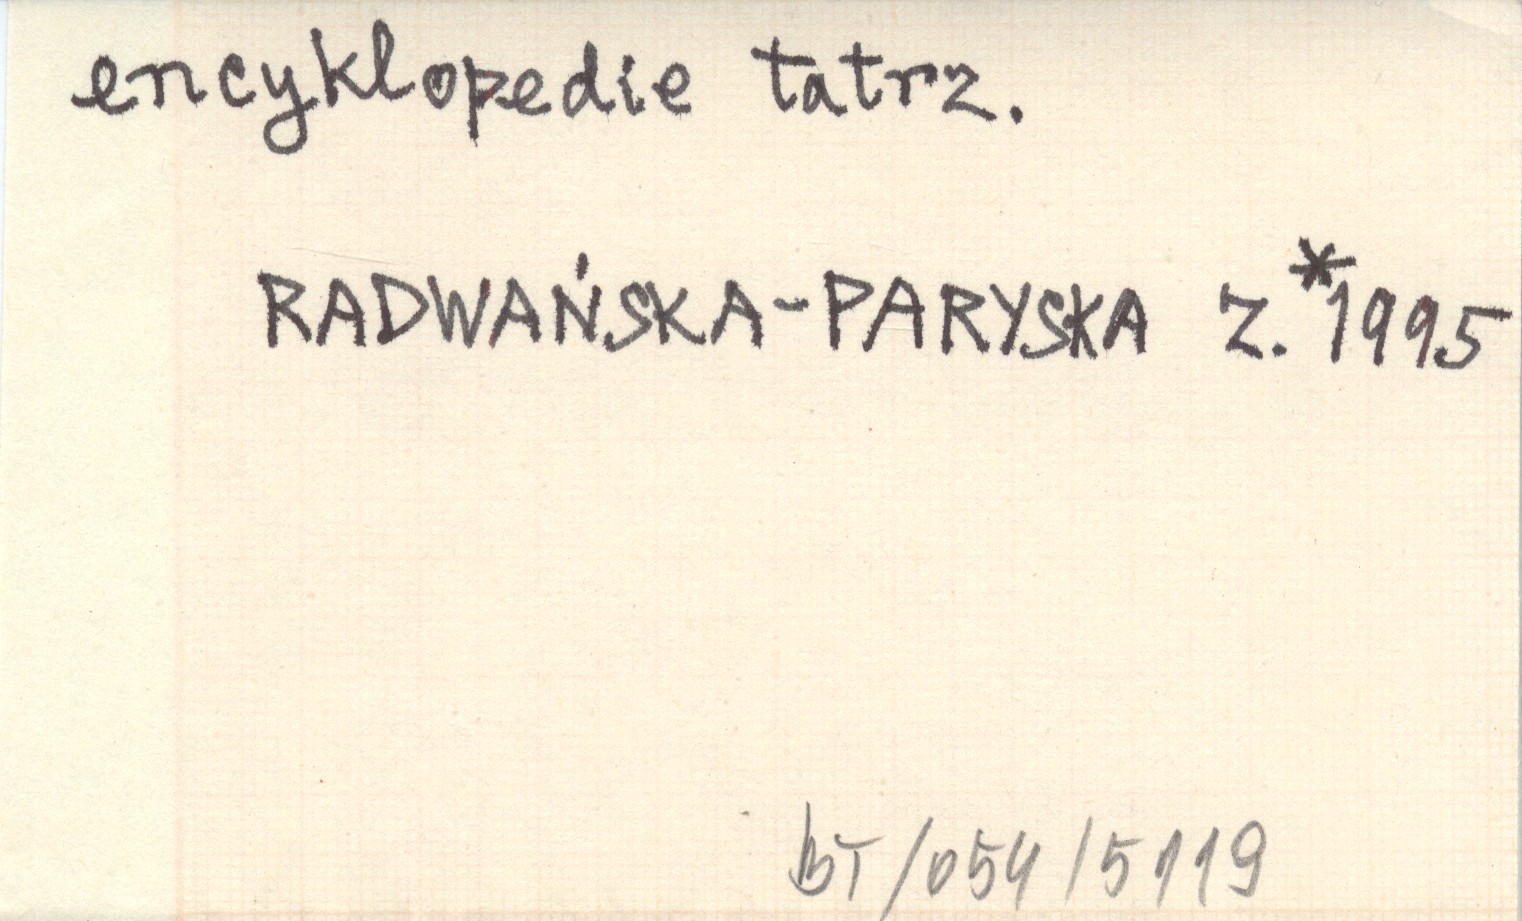 encyklopedie tatrz.
RADWAŃSKA-PARYSKA Z.*1995
bT/054/5119